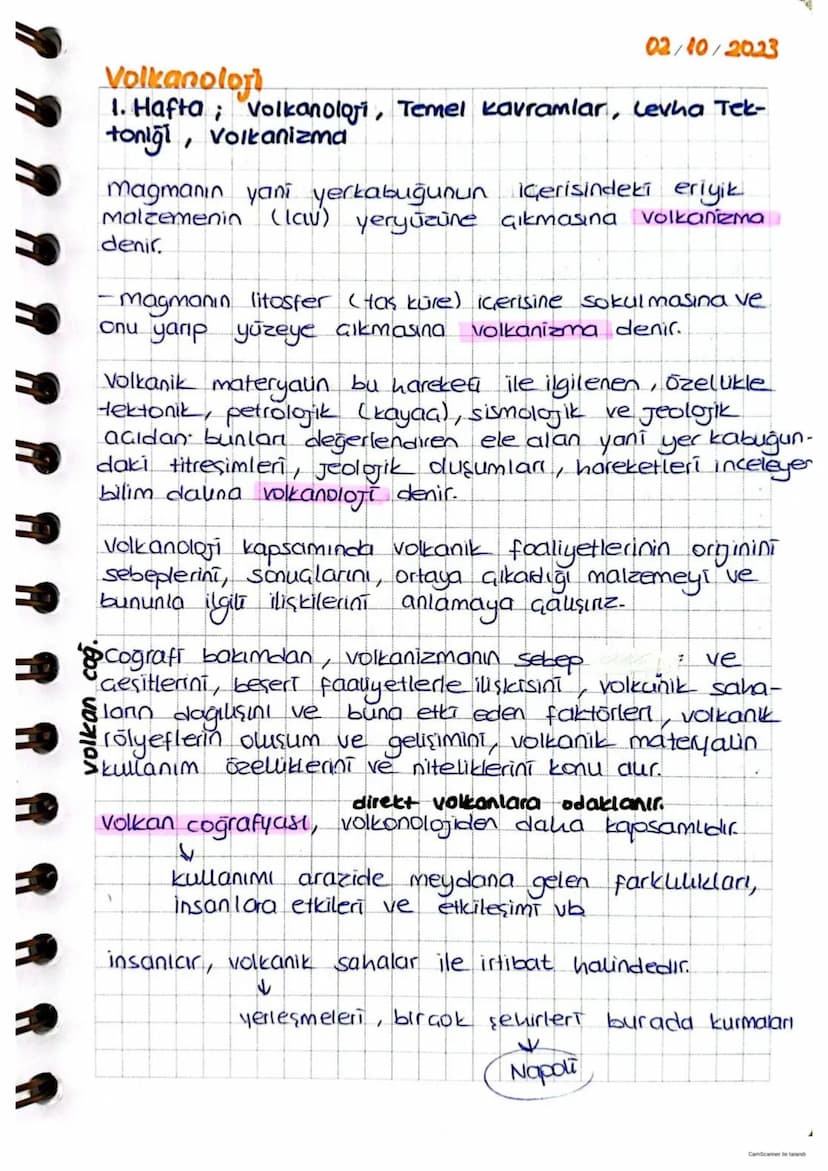 02/10/2023
Volkanoloji
1. Hafta ; Volkanoloji, Temel kavramlar, Levha Tek-
toniği, Volkanizma
Magmanın yani yerkabuğunun içerisindeki eriyik
malzemenin (lav) yeryüzüne çıkmasına volkanizma
denir.
- Magmanın litosfer (taş küre) içerisine sokulmasına ve
onu yarıp yüzeye çıkmasına volkanizma denir.
Volkanik materyalin bu hareketi ile ilgilenen, özellikle
tektonik, petrolojik (kayaç), sismolojik ve jeolojik
açıdan bunları değerlendiren ele alan yani yer kabuğun-
daki titreşimleri, jeolojik oluşumları, hareketleri inceleyen
bilim dalına volkanoloji denir.
Volkanoloji kapsamında volkanik faaliyetlerinin orginini
sebeplerini, sonuçlarını, ortaya çıkardığı malzemeyi ve
bununla ilgili ilişkilerini anlamaya çalışırız.
volkan coğ.
Coğrafi bakımdan, volkanizmanın sebep : ve
çeşitlerini, beşeri faaliyetlerle ilişkisini, volkanik saha-
ların dağılışını ve buna etki eden faktörleri, volkanik
rölyeflerin oluşum ve gelişimini, volkanik materyalin
kullanım özelliklerini ve niteliklerini konu alır.
direkt volkanlara odaklanır.
volkan coğrafyası, volkonolojiden daha kapsamlıdır.
↓
kullanımı arazide meydana gelen farklılıkları,
insanlara etkileri ve etkileşimi vb
insanlar, volkanik sahalar ile irtibat halindedir.
↓
yerleşmeleri, birçok şehirleri burada kurmaları
↓
Napoli
CamScanner ile tarandı